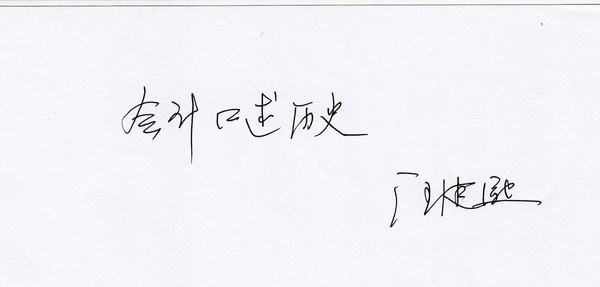 会计口述历史